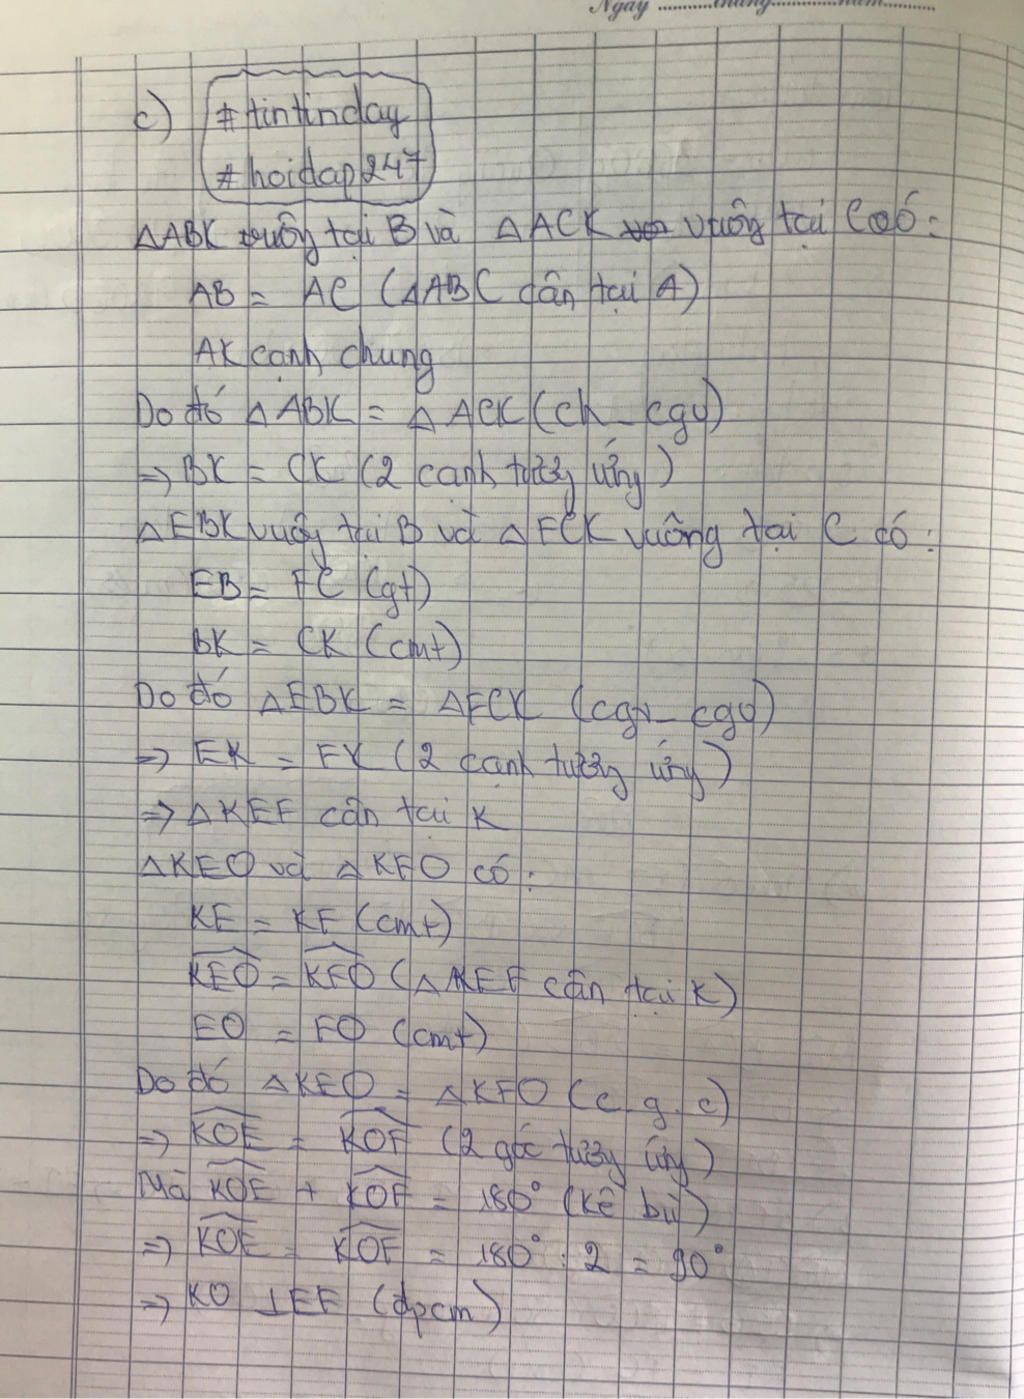 Ngày ............tháng............năm............
c) #tintinday
#hoidap247
△ABK vuông tại B và △ACK vuông tại C có:
AB = AC (△ABC cân tại A)
AK cạnh chung
Do đó △ABK = △ACK (ch_cgv)
⇒ BK = CK (2 cạnh tương ứng)
△EBK vuông tại B và △FCK vuông tại C có:
EB = FC (gt)
BK = CK (cmt)
Do đó △EBK = △FCK (cgv_cgv)
⇒ EK = FK (2 cạnh tương ứng)
⇒ △KEF cân tại K
△KEO và △KFO có:
KE = KF (cmt)
\widehat{KEO} = \widehat{KFO} (△KEF cân tại K)
EO = FO (cmt)
Do đó △KEO = △KFO (c.g.c)
⇒ \widehat{KOE} = \widehat{KOF} (2 góc tương ứng)
Mà \widehat{KOE} + \widehat{KOF} = 180° (kề bù)
⇒ \widehat{KOE} = \widehat{KOF} = 180° : 2 = 90°
⇒ KO ⊥ EF (đpcm)